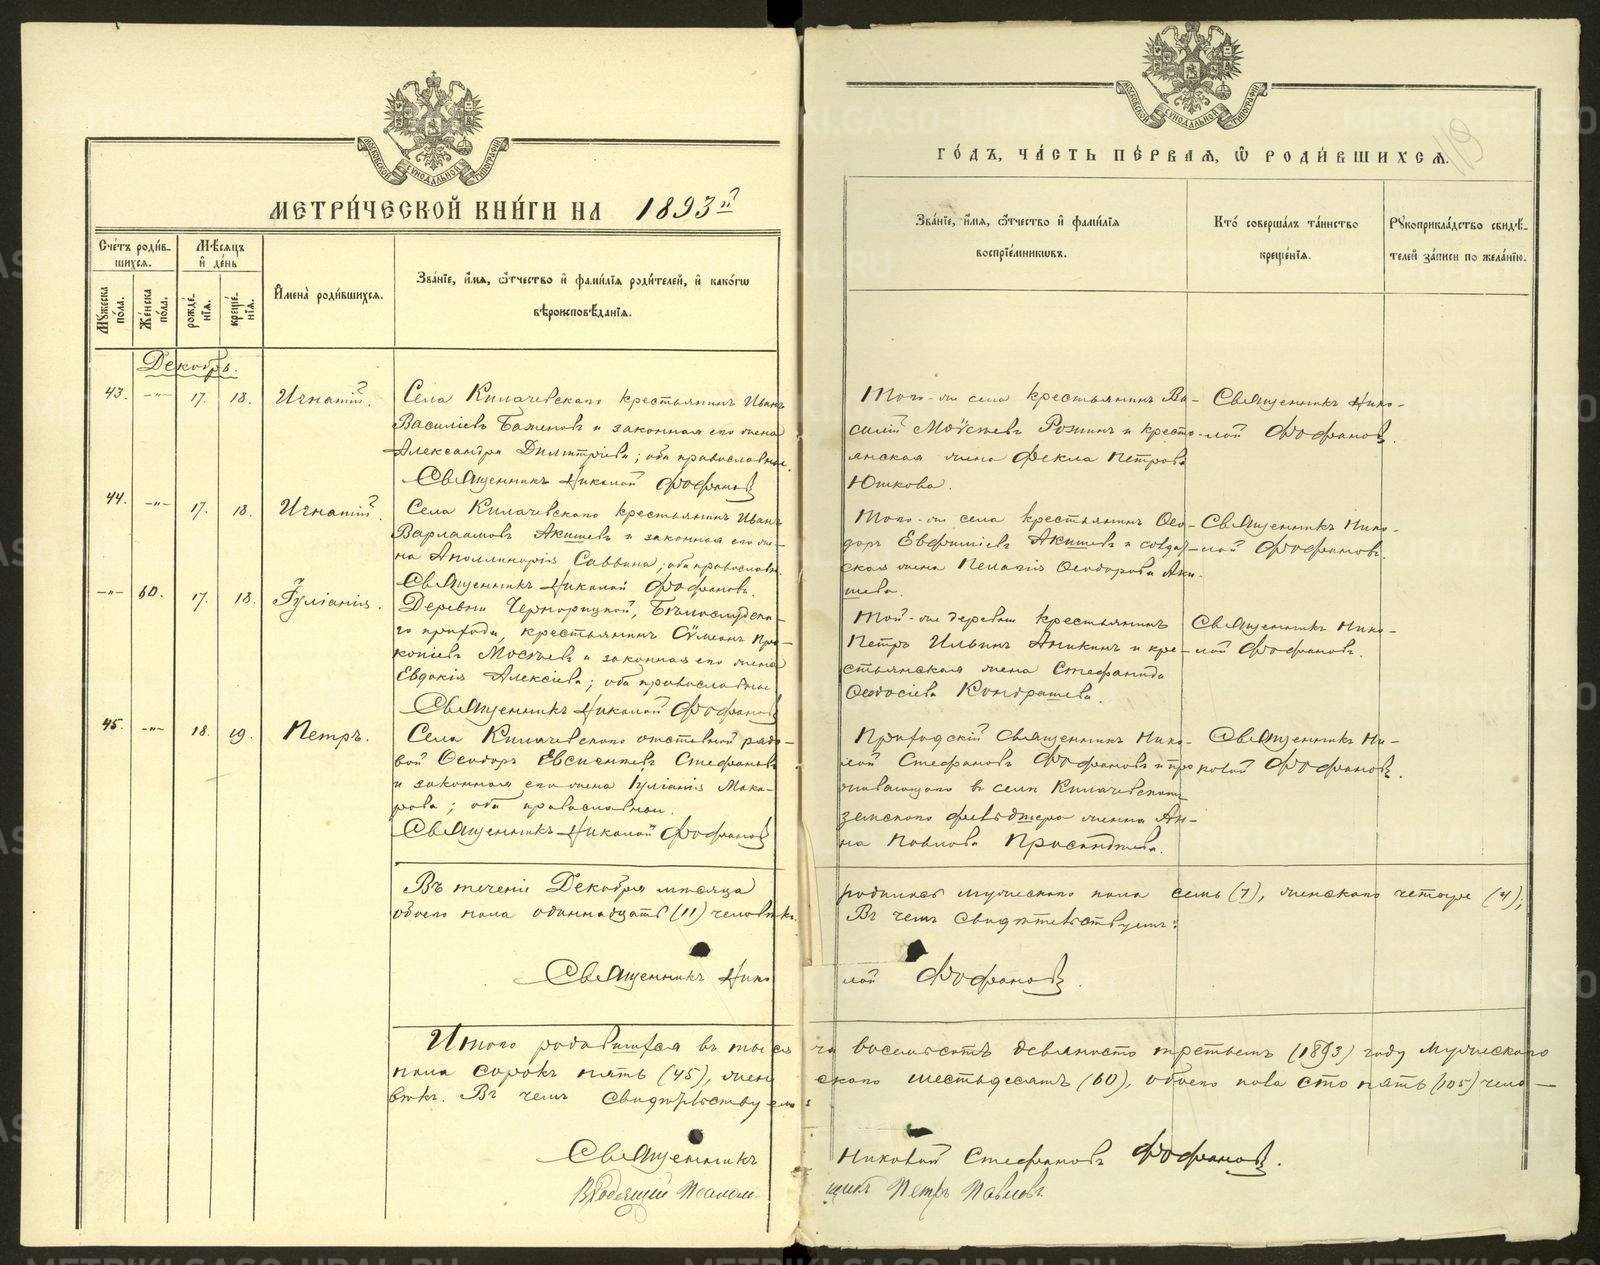 МОСКОВСКОЙ СѴНОДАЛЬНОЙ ТИПОГРАФІИ
МЕТРИ́ЧЕСКОЙ КНИ́ГИ НА 1893й
Сче́тъ роди́в-
шихся.
Мѣ́сяцъ
и де́нь
Му́жеска по́ла.
Же́нска по́ла.
рожде́-
нїя.
креще́-
нїя.
Имена̀ роди́вшихся.
Зва́нїе, и́мя, ѻ́тчество и фами́лїя роди́телей, и како́гѡ
вѣроисповѣ́данїя.
Декабрь.
43. —"— 17. 18. Игнатій.
Села Килачевскаго крестьянинъ Иванъ
Василіевъ Баженовъ и законная его жена
Александра Димитріева; оба православные.
Священникъ Николай Фофановъ
44. —"— 17. 18. Игнатій.
Села Килачевскаго крестьянинъ Иванъ
Варлаамовъ Акишевъ и законная его же-
на Аполлинарія Саввина; оба православн.
Священникъ Николай Фофановъ.
—"— 60. 17. 18. Іуліанія.
Деревни Чернорицкой, Бѣлослудска-
го прихода, крестьянинъ Сѵмеонъ Про-
копіевъ Мосѣевъ и законная его жена
Евдокія Алексіева; оба православные
Священникъ Николай Фофановъ
45. —"— 18. 19. Петръ.
Села Килачевскаго отставной рядо-
вой Ѳеодоръ Евсигніевъ Стефановъ
и законная его жена Іуліанія Мака-
рова; оба православные.
Священникъ Николай Фофановъ
Въ теченіе Декабря мѣсяца
обоего пола одиннадцать (11) человѣкъ.
Священникъ Нико
Итого родившихся въ тыся
пола сорокъ пять (45), жен
вѣкъ. Въ чемъ свидѣтельствуем
Священникъ
Владѣющій Псалом-
МОСКОВСКОЙ СѴНОДАЛЬНОЙ ТИПОГРАФІИ
119
ГО́ДЪ, ЧА́СТЬ ПЕ́РВАЯ, Ѡ҆ РОДИ́ВШИХСЯ.
Зва́нїе, и́мя, ѻ́тчество и фами́лїя
воспрїе́мникѡвъ.
Кто̀ соверша́лъ та́инство
креще́нїя.
Рукоприкла́дство свидѣ́-
телей за́писи по жела́нїю.
Того-же села крестьянинъ Ва-
силій Моѵсѣевъ Рожинъ и кресть-
янская жена Фекла Петрова
Юшкова.
Священникъ Нико-
лай Фофановъ.
Того-же села крестьянинъ Ѳео-
доръ Евфиміевъ Акишевъ и солдат-
ская жена Пелагія Ѳеодорова Аки-
шева.
Священникъ Нико-
лай Фофановъ.
Той-же деревни крестьянинъ
Петръ Ильинъ Аникинъ и кре-
стьянская жена Стефанида
Ѳеодосіева Кондрашева.
Священникъ Нико-
лай Фофановъ.
Приходскій Священникъ Нико-
лай Стефановъ Фофановъ и про
живающаго въ селѣ Килачевскомъ
земскаго фельдшера жена Ан-
на Павлова
Священникъ Ни-
колай Фофановъ.
родилось мужескаго пола семь (7), женскаго четыре (4);
Въ чемъ свидѣтельствуемъ:
лай Фофановъ.
ча восемьсотъ девяносто третьемъ (1893) году мужескаго
скаго шестьдесятъ (60), обоего пола сто пять (105) чело—
ъ:
Николай Стефановъ Фофановъ.
щикъ Петръ Павловъ
METRIKI.GASO-URAL.RU